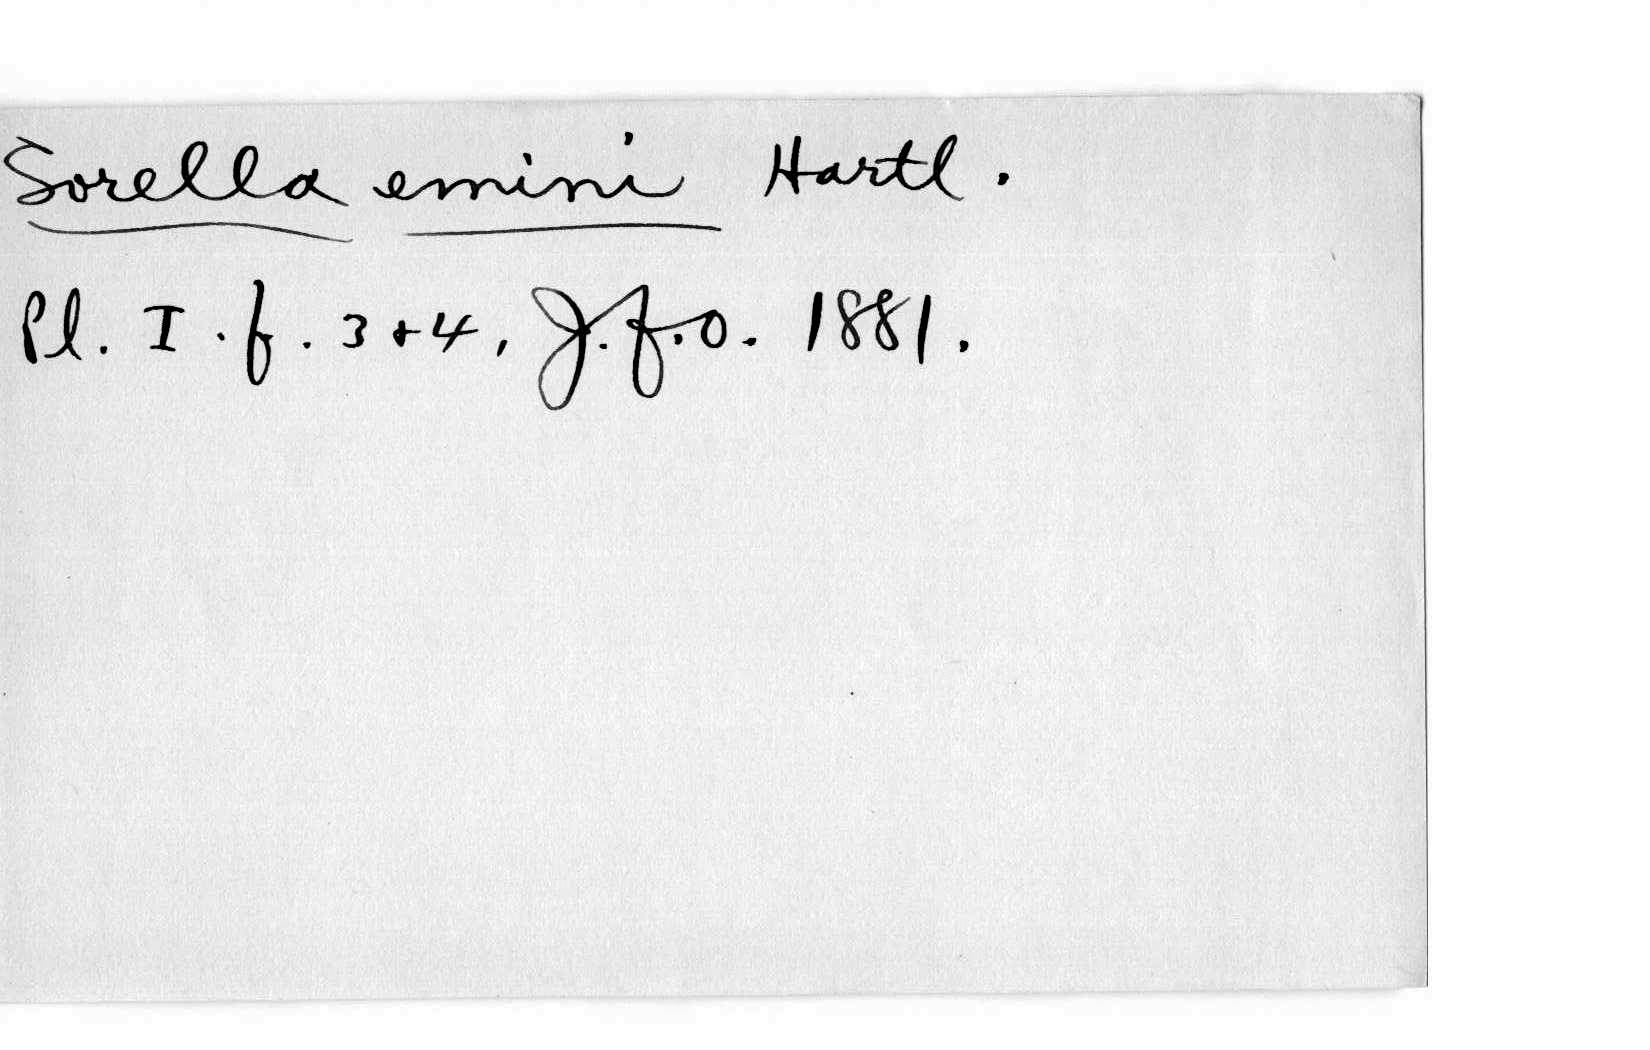 Sorella emini Hartl.
Pl. I. f. 3 + 4, J. f. O. 1881.